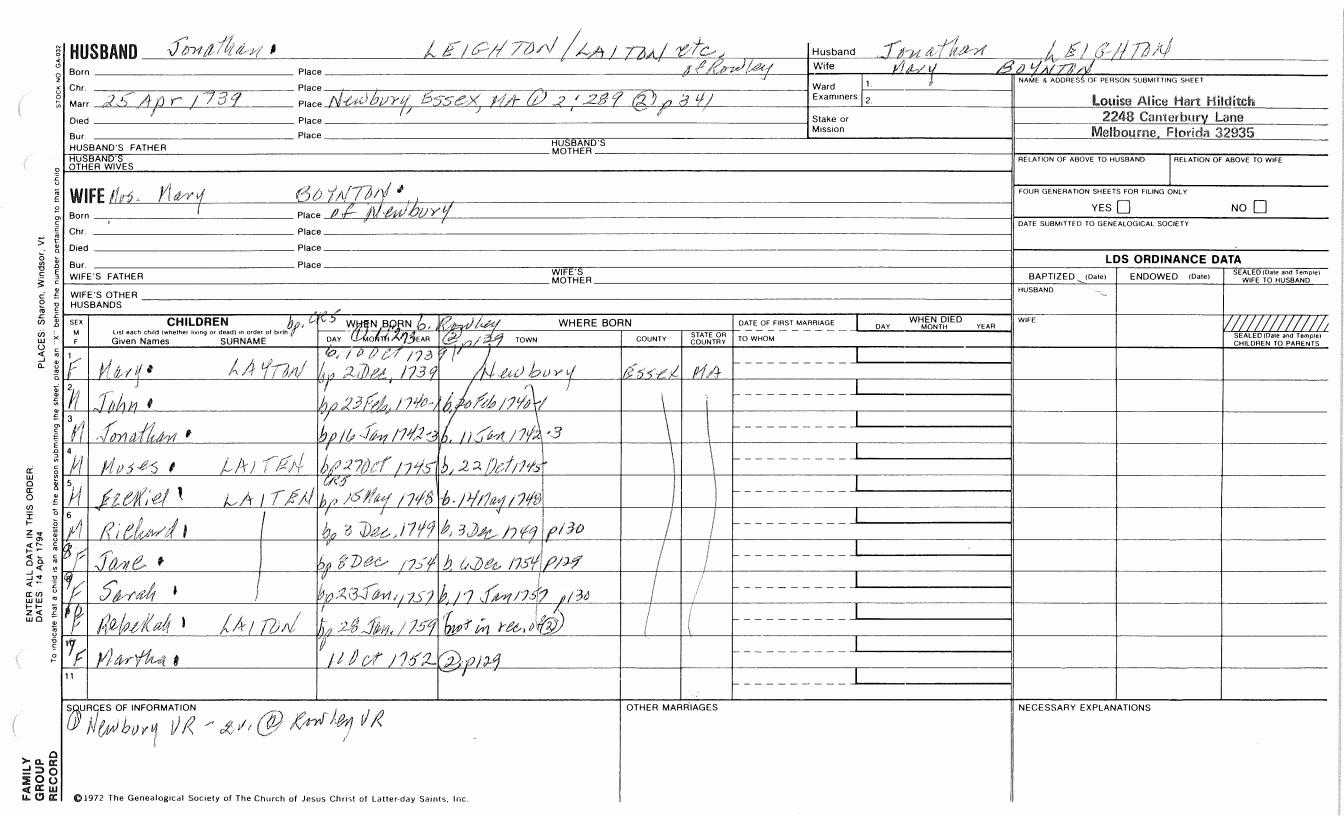 HUSBAND Jonathan LEIGHTON/LAITON etc. of Rowley
Born Place
Chr. Place
Marr 25 Apr 1739 Place Newbury, Essex, MA ① 2:289 ② p341
Died Place
Bur. Place
HUSBAND'S FATHER HUSBAND'S MOTHER
HUSBAND'S OTHER WIVES
Husband Jonathan LEIGHTON
Wife Mary BOYNTON
Ward Examiners 1. 2.
Stake or Mission
NAME & ADDRESS OF PERSON SUBMITTING SHEET
Louise Alice Hart Hilditch
2248 Canterbury Lane
Melbourne, Florida 32935
RELATION OF ABOVE TO HUSBAND RELATION OF ABOVE TO WIFE
FOUR GENERATION SHEETS FOR FILING ONLY
YES NO
DATE SUBMITTED TO GENEALOGICAL SOCIETY
WIFE Mrs. Mary BOYNTON
Born Place of Newbury
Chr. Place
Died Place
Bur. Place
WIFE'S FATHER WIFE'S MOTHER
WIFE'S OTHER HUSBANDS
LDS ORDINANCE DATA
BAPTIZED (Date) ENDOWED (Date) SEALED (Date and Temple) WIFE TO HUSBAND
HUSBAND
WIFE
SEALED (Date and Temple) CHILDREN TO PARENTS
SEX M F
CHILDREN
List each child (whether living or dead) in order of birth
Given Names SURNAME
bp. CR5 WHEN BORN b. Rowley
DAY MONTH YEAR ② p139
WHERE BORN
TOWN COUNTY STATE OR COUNTRY
DATE OF FIRST MARRIAGE
TO WHOM
WHEN DIED
DAY MONTH YEAR
b. 10 OCT 1739
1 F Mary LAYTON bp 2 Dec, 1739 Newbury Essex MA
2 M John bp 23 Feb, 1740-1 b. 20 Feb 1740-1
3 M Jonathan bp 16 Jan 1742-3 b. 11 Jan 1742-3
4 M Moses LAITEN bp 27 Oct 1745 b. 22 Oct 1745
CR5
5 M Ezekiel LAITEN bp 15 May 1748 b. 14 May 1748
6 M Richard bp 3 Dec, 1749 b. 3 Dec 1749 p130
8 F Jane bp 8 Dec 1754 b. 6 Dec 1754 p129
9 F Sarah bp 23 Jan, 1757 b. 17 Jan 1757 p130
10 F Rebekah LAITON bp 28 Jan. 1759 (not in rec. of ②)
7 F Martha 11 Oct 1752 ② p129
11
SOURCES OF INFORMATION
① Newbury VR - 2v. ② Rowley VR
OTHER MARRIAGES
NECESSARY EXPLANATIONS
©1972 The Genealogical Society of The Church of Jesus Christ of Latter-day Saints, Inc.
STOCK NO. GA-032
To indicate that a child is an ancestor of the person submitting the sheet, place an "X" behind the number pertaining to that child
PLACES Sharon, Windsor, Vt.
ENTER ALL DATA IN THIS ORDER
DATES 14 Apr 1794
FAMILY GROUP RECORD